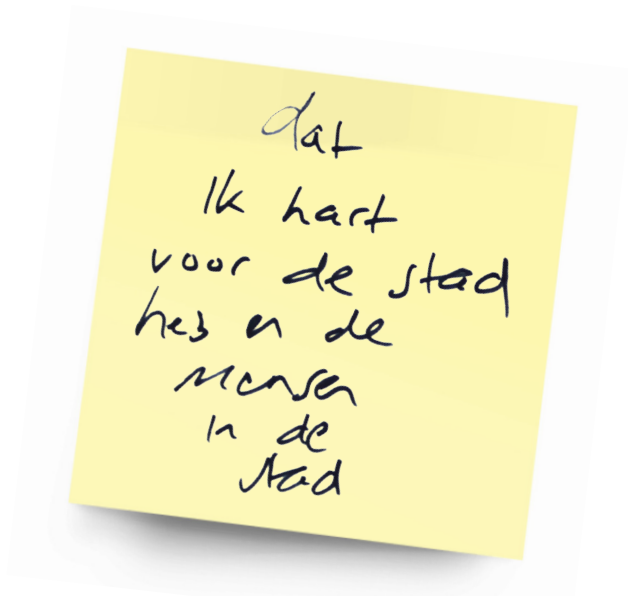 dat
Ik hart
voor de stad
heb en de
mensen
in de
stad